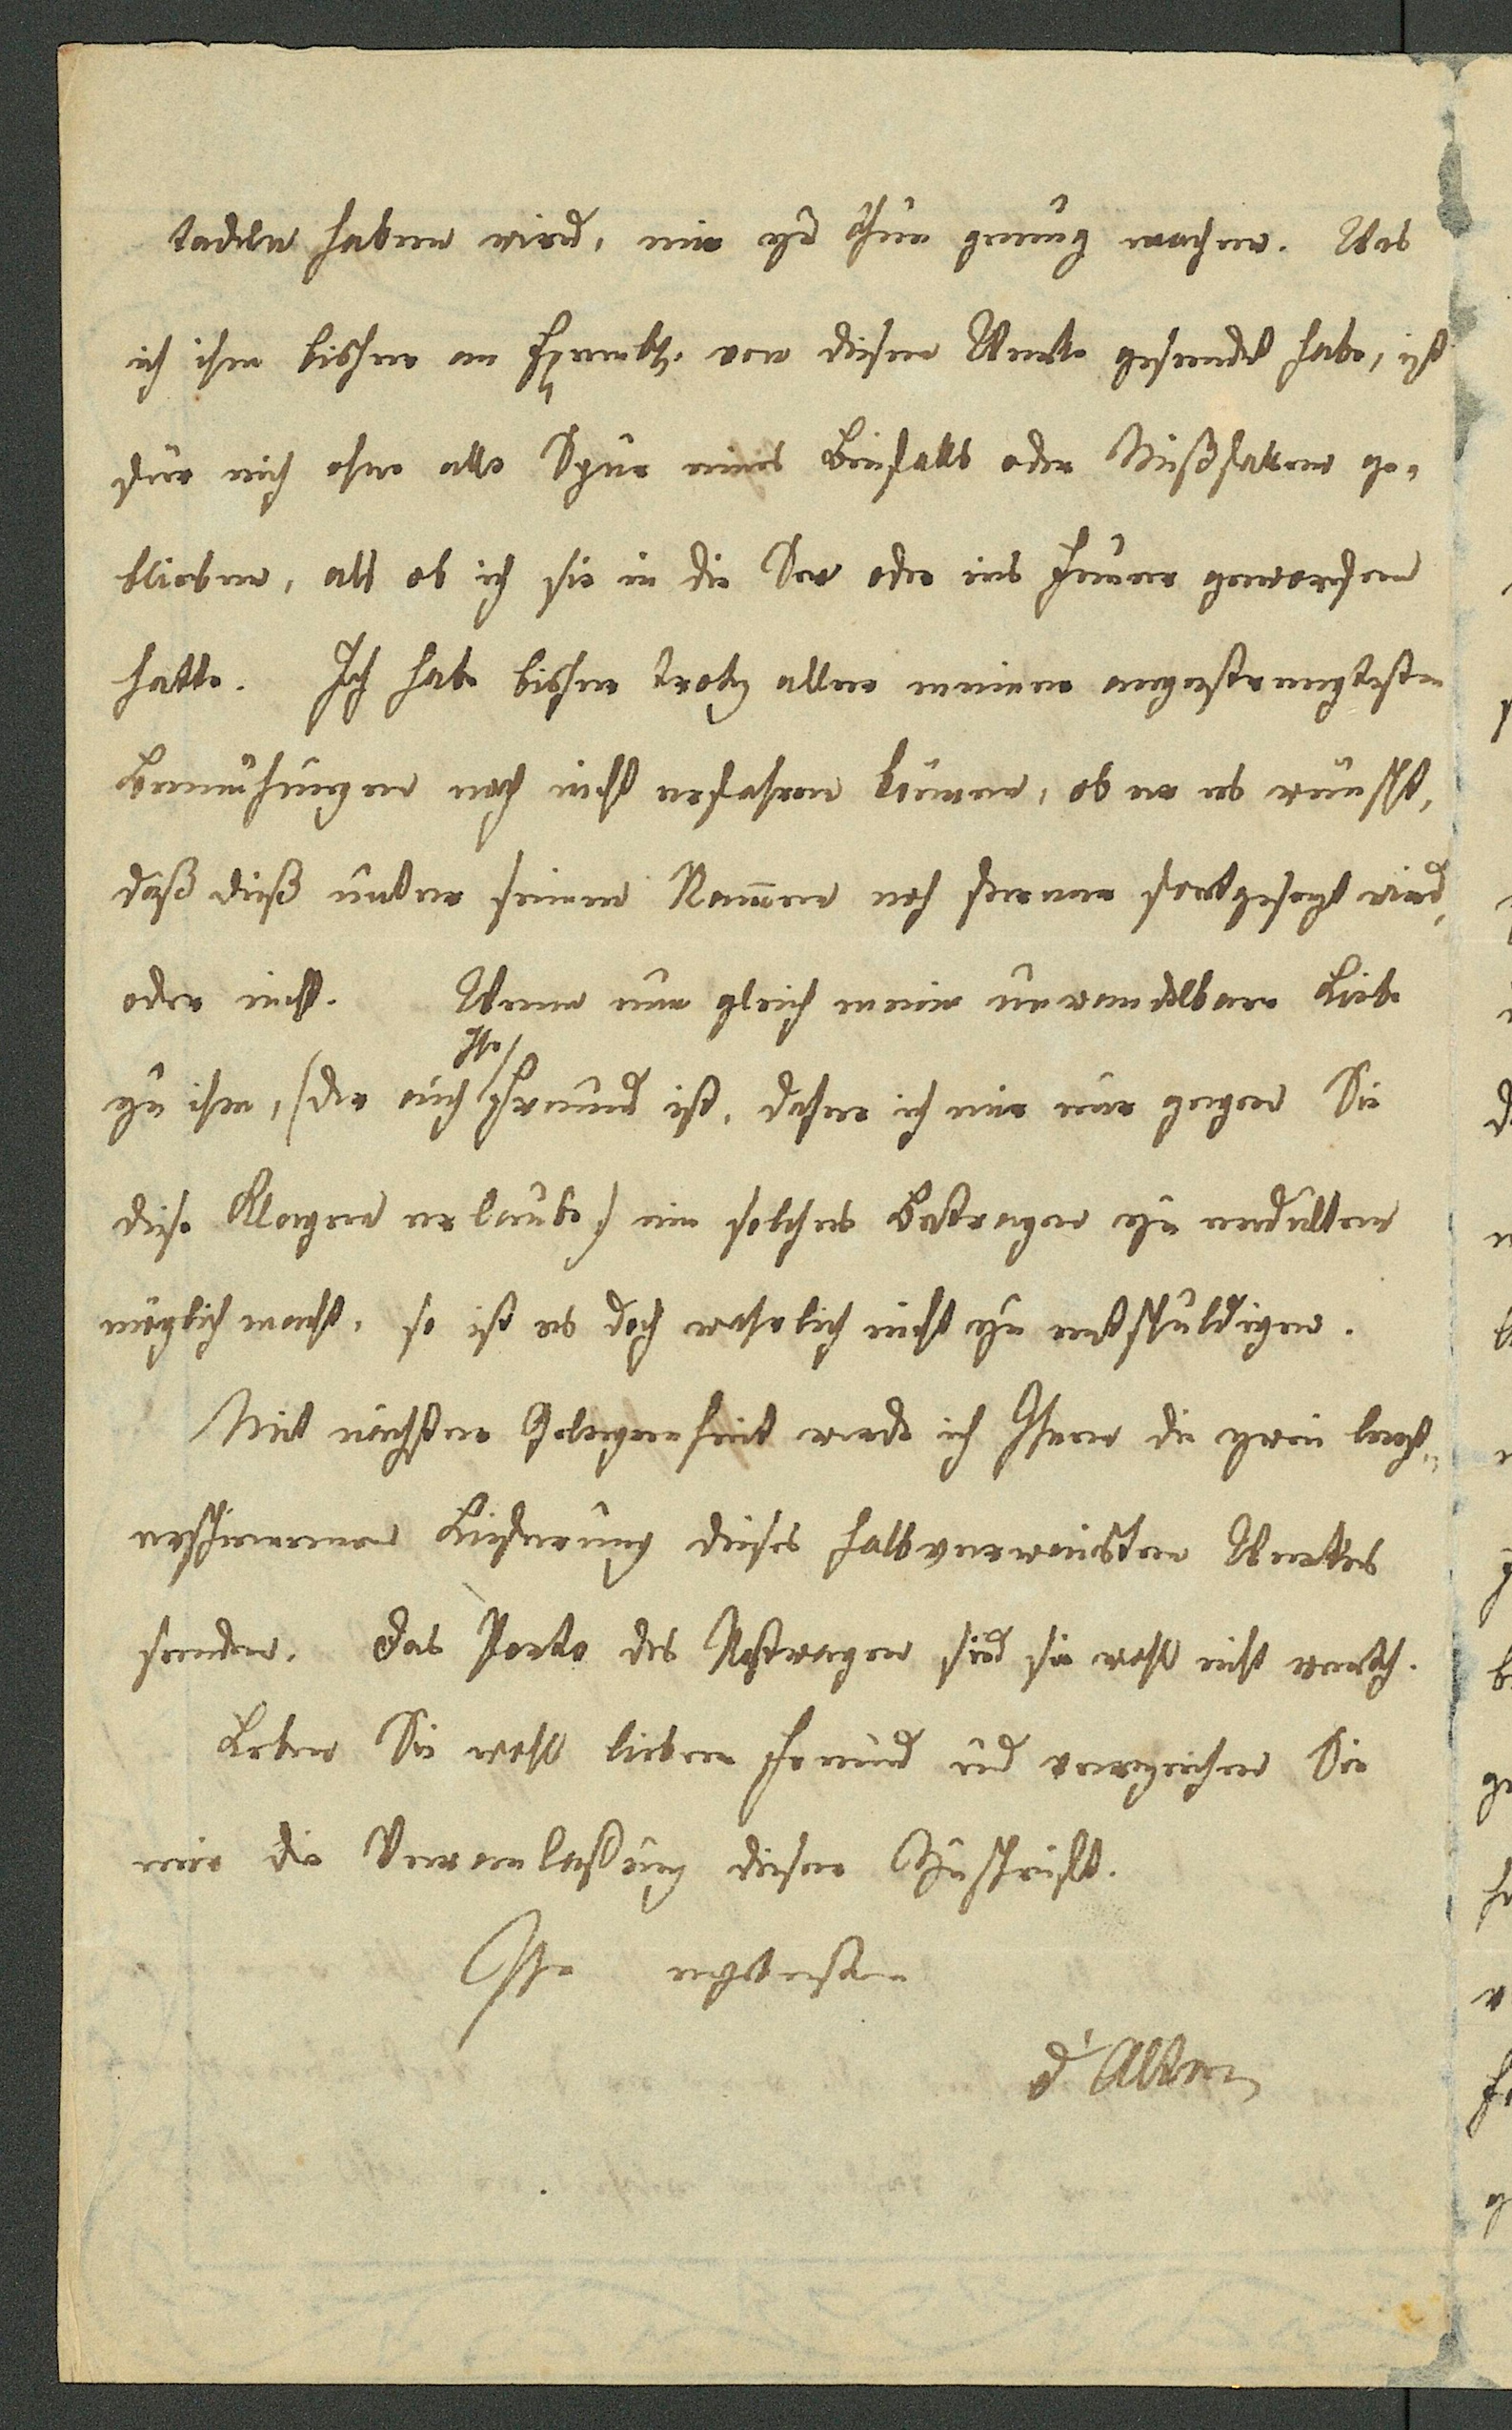 tadeln haben wird, mir zu thun genug machen. Was
ich ihm bisher an Exemplr. von diesem Werke gesendet habe, ist
für mich ohne alle Spur eines Beifalls oder Mißfallens ge-
blieben, als ob ich sie in die See oder ins Feuer geworfen
hatte. Ich habe bisher trotz aller meiner angestrengtesten
Bemühungen noch nicht erfahren können, ob er es wünscht,
daß dieß unter seinem Namen noch ferner fortgesezt wird,
oder nicht. Wenn nun gleich meine unwandelbare Liebe
zu ihm, (der auch Ihr Freund ist, daher ich mir nur gegen Sie
diese Klagen erlaube) ein solches Betragen zu erdulten
möglich macht, so ist es doch wahrlich nicht zu entschuldigen.
Mit nächster Gelegenheit werde ich Ihnen die zwei lezt-
erschienenen Lieferung dieses halbverwaisten Werkes
senden. Das Porto des Postwagen sind sie wohl nicht werth.
Leben Sie wohl lieber Freund und verzeihen Sie
mir die Veranlaßung dieser Zuschrift.
Ihr ergebenster
d'Alton